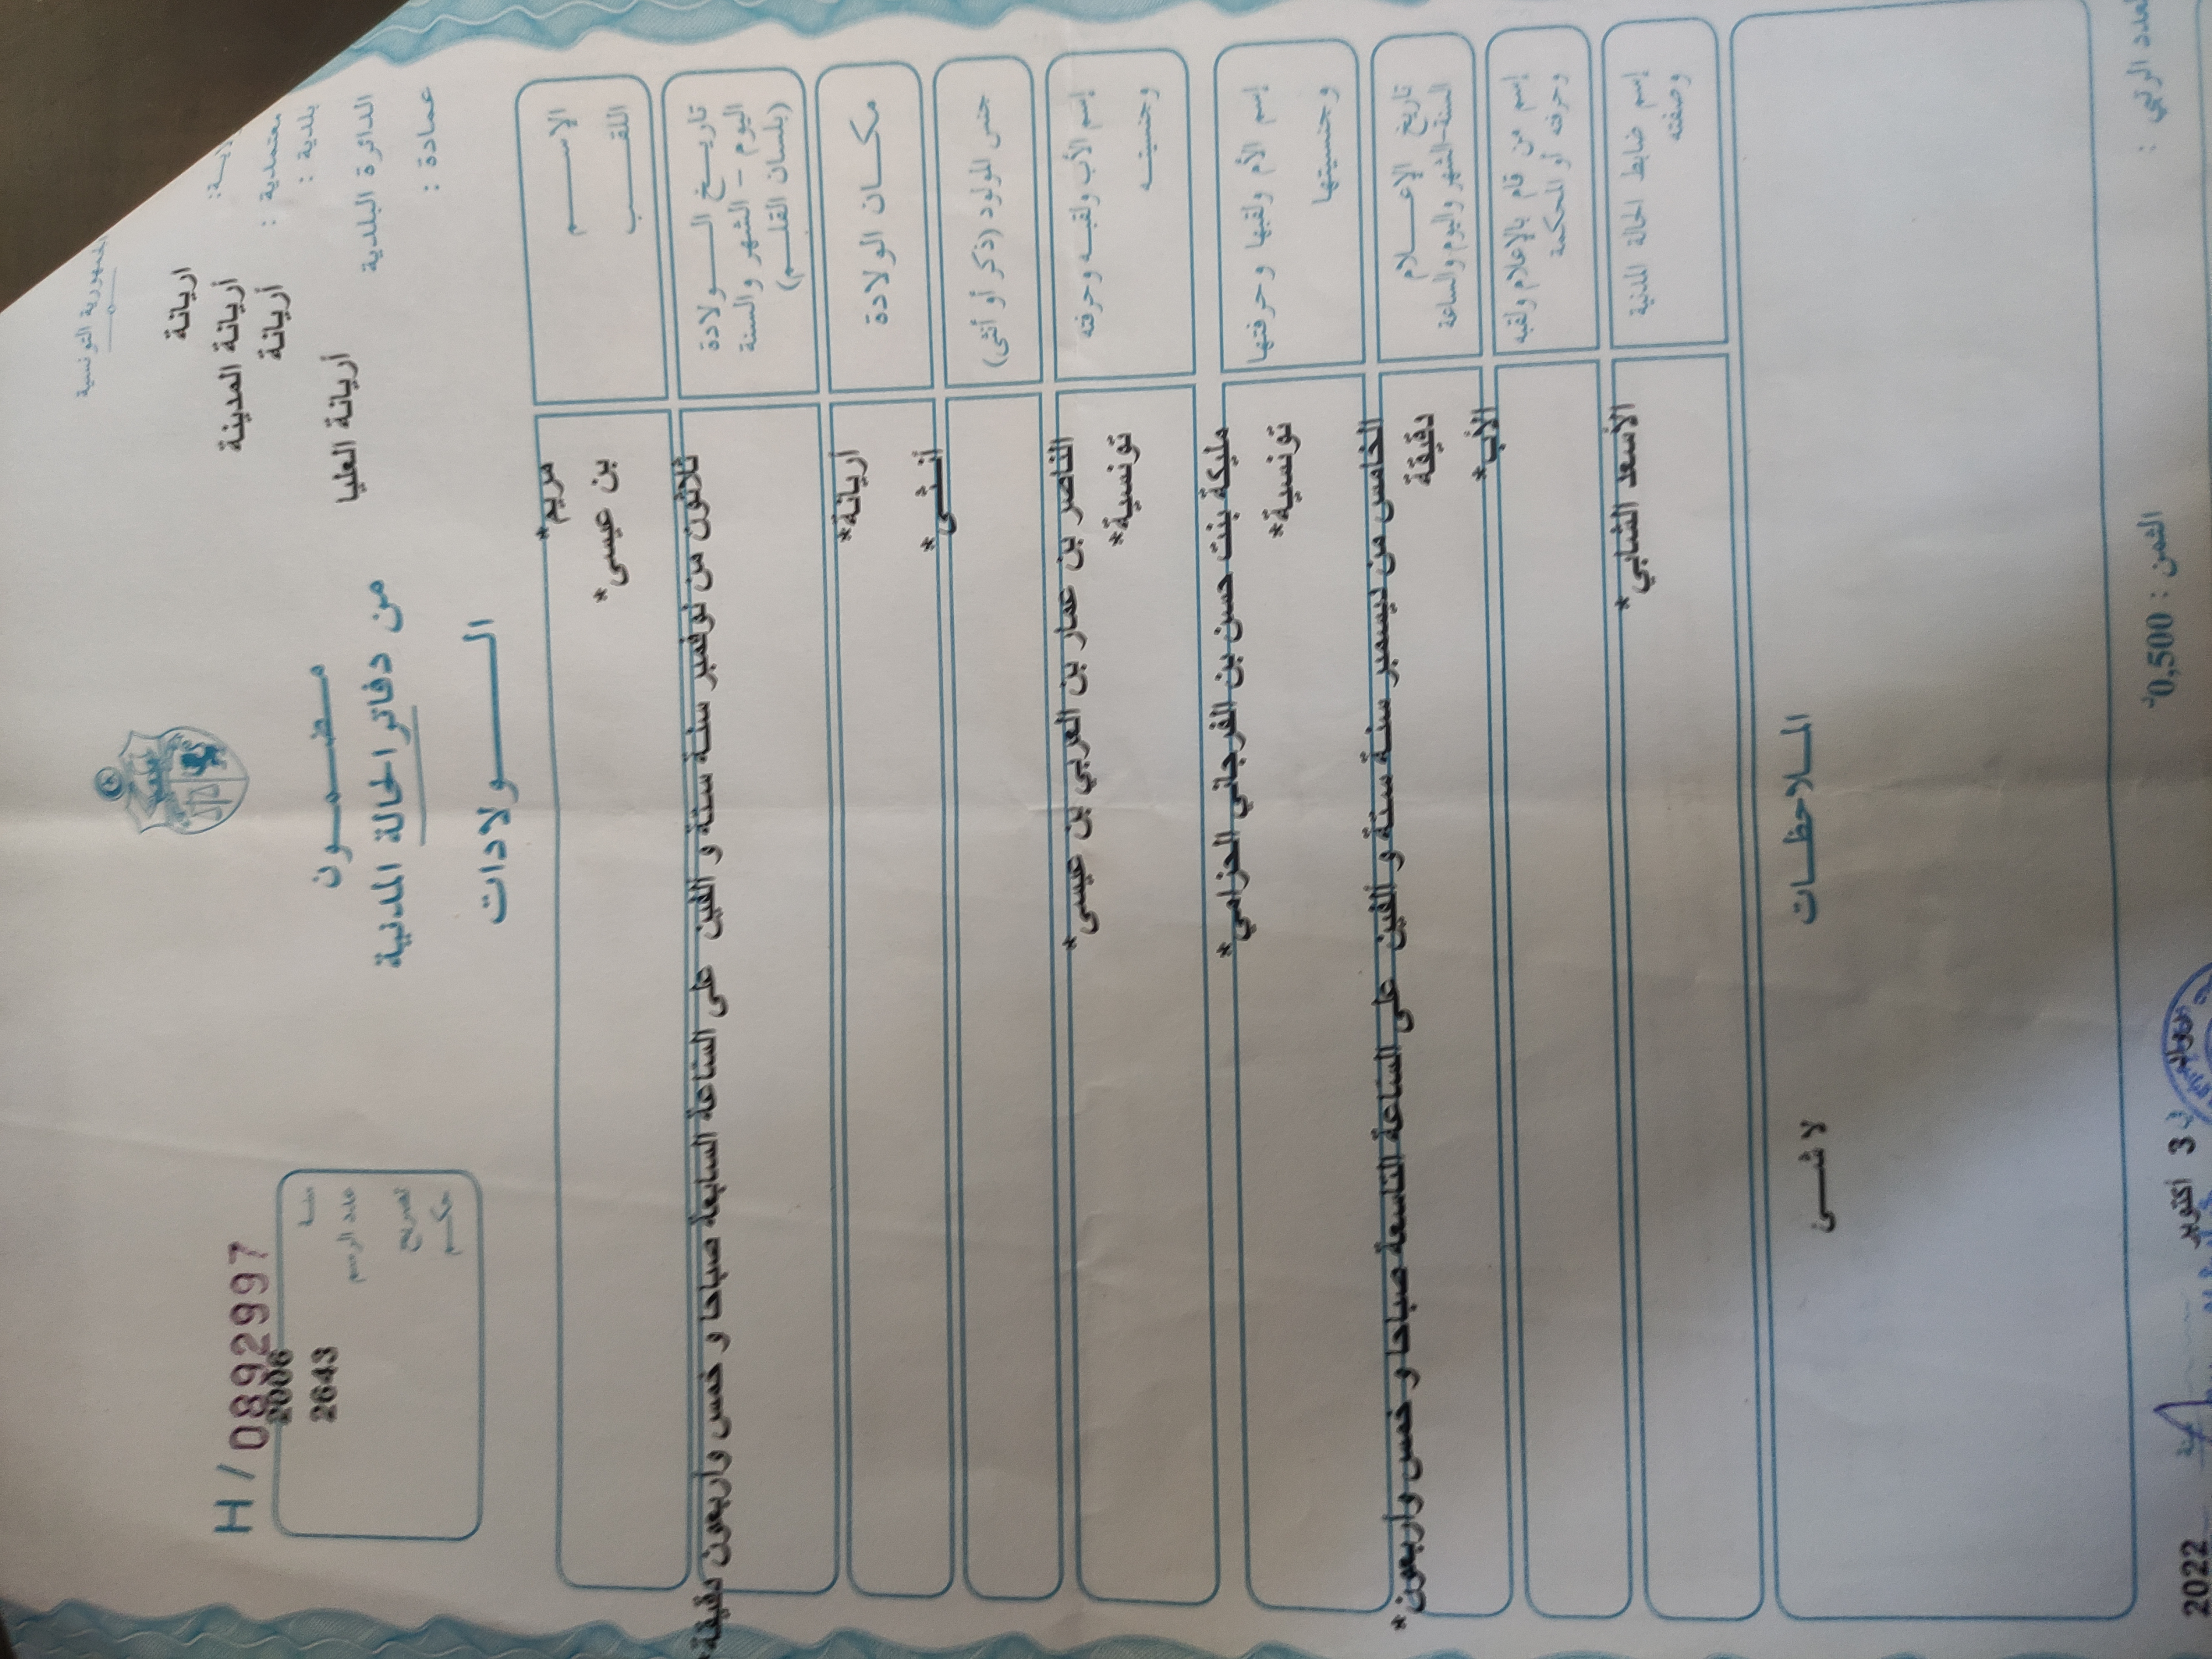 الجمهورية التونسية
H / 0892997
اريانة
بلدية : أريانة المدينة
معتمدية : أريانة
الدائرة البلدية أريانة العليا
عمادة :
مضمون
من دفاتر الحالة المدنية
الولادات
سنة 2006
عدد الرسم 2643
تصريح
حكم
الاسم مريم*
اللقب بن عيسى*
تاريخ الولادة
اليوم - الشهر والسنة
(بلسان القلم)
ثلاثون من نوفمبر سنة ستة و ألفين على الساعة السابعة صباحا و خمس وأربعون دقيقة*
مكان الولادة أريانة*
جنس المولود (ذكر أو أنثى) أنثى*
إسم الأب ولقبه وحرفته الناصر بن عمار بن العربي بن عيسى*
وجنسيته تونسية*
إسم الأم ولقبها وحرفتها مليكة بنت حسن بن الفرجاني الحزامي*
وجنسيتها تونسية*
تاريخ الإعلام
السنة-الشهر واليوم والساعة
الخامس من ديسمبر سنة ستة و ألفين على الساعة التاسعة صباحا و خمس وأربعون*
دقيقة
إسم من قام بالإعلام ولقبه
وحرفته أو المحكمة
الأب*
إسم ضابط الحالة المدنية
وصفته
الأسعد الشابي*
الملاحظات
لا شيء
العدد الرتبي :
الثمن : 0,500
في 3 أكتوبر 2022